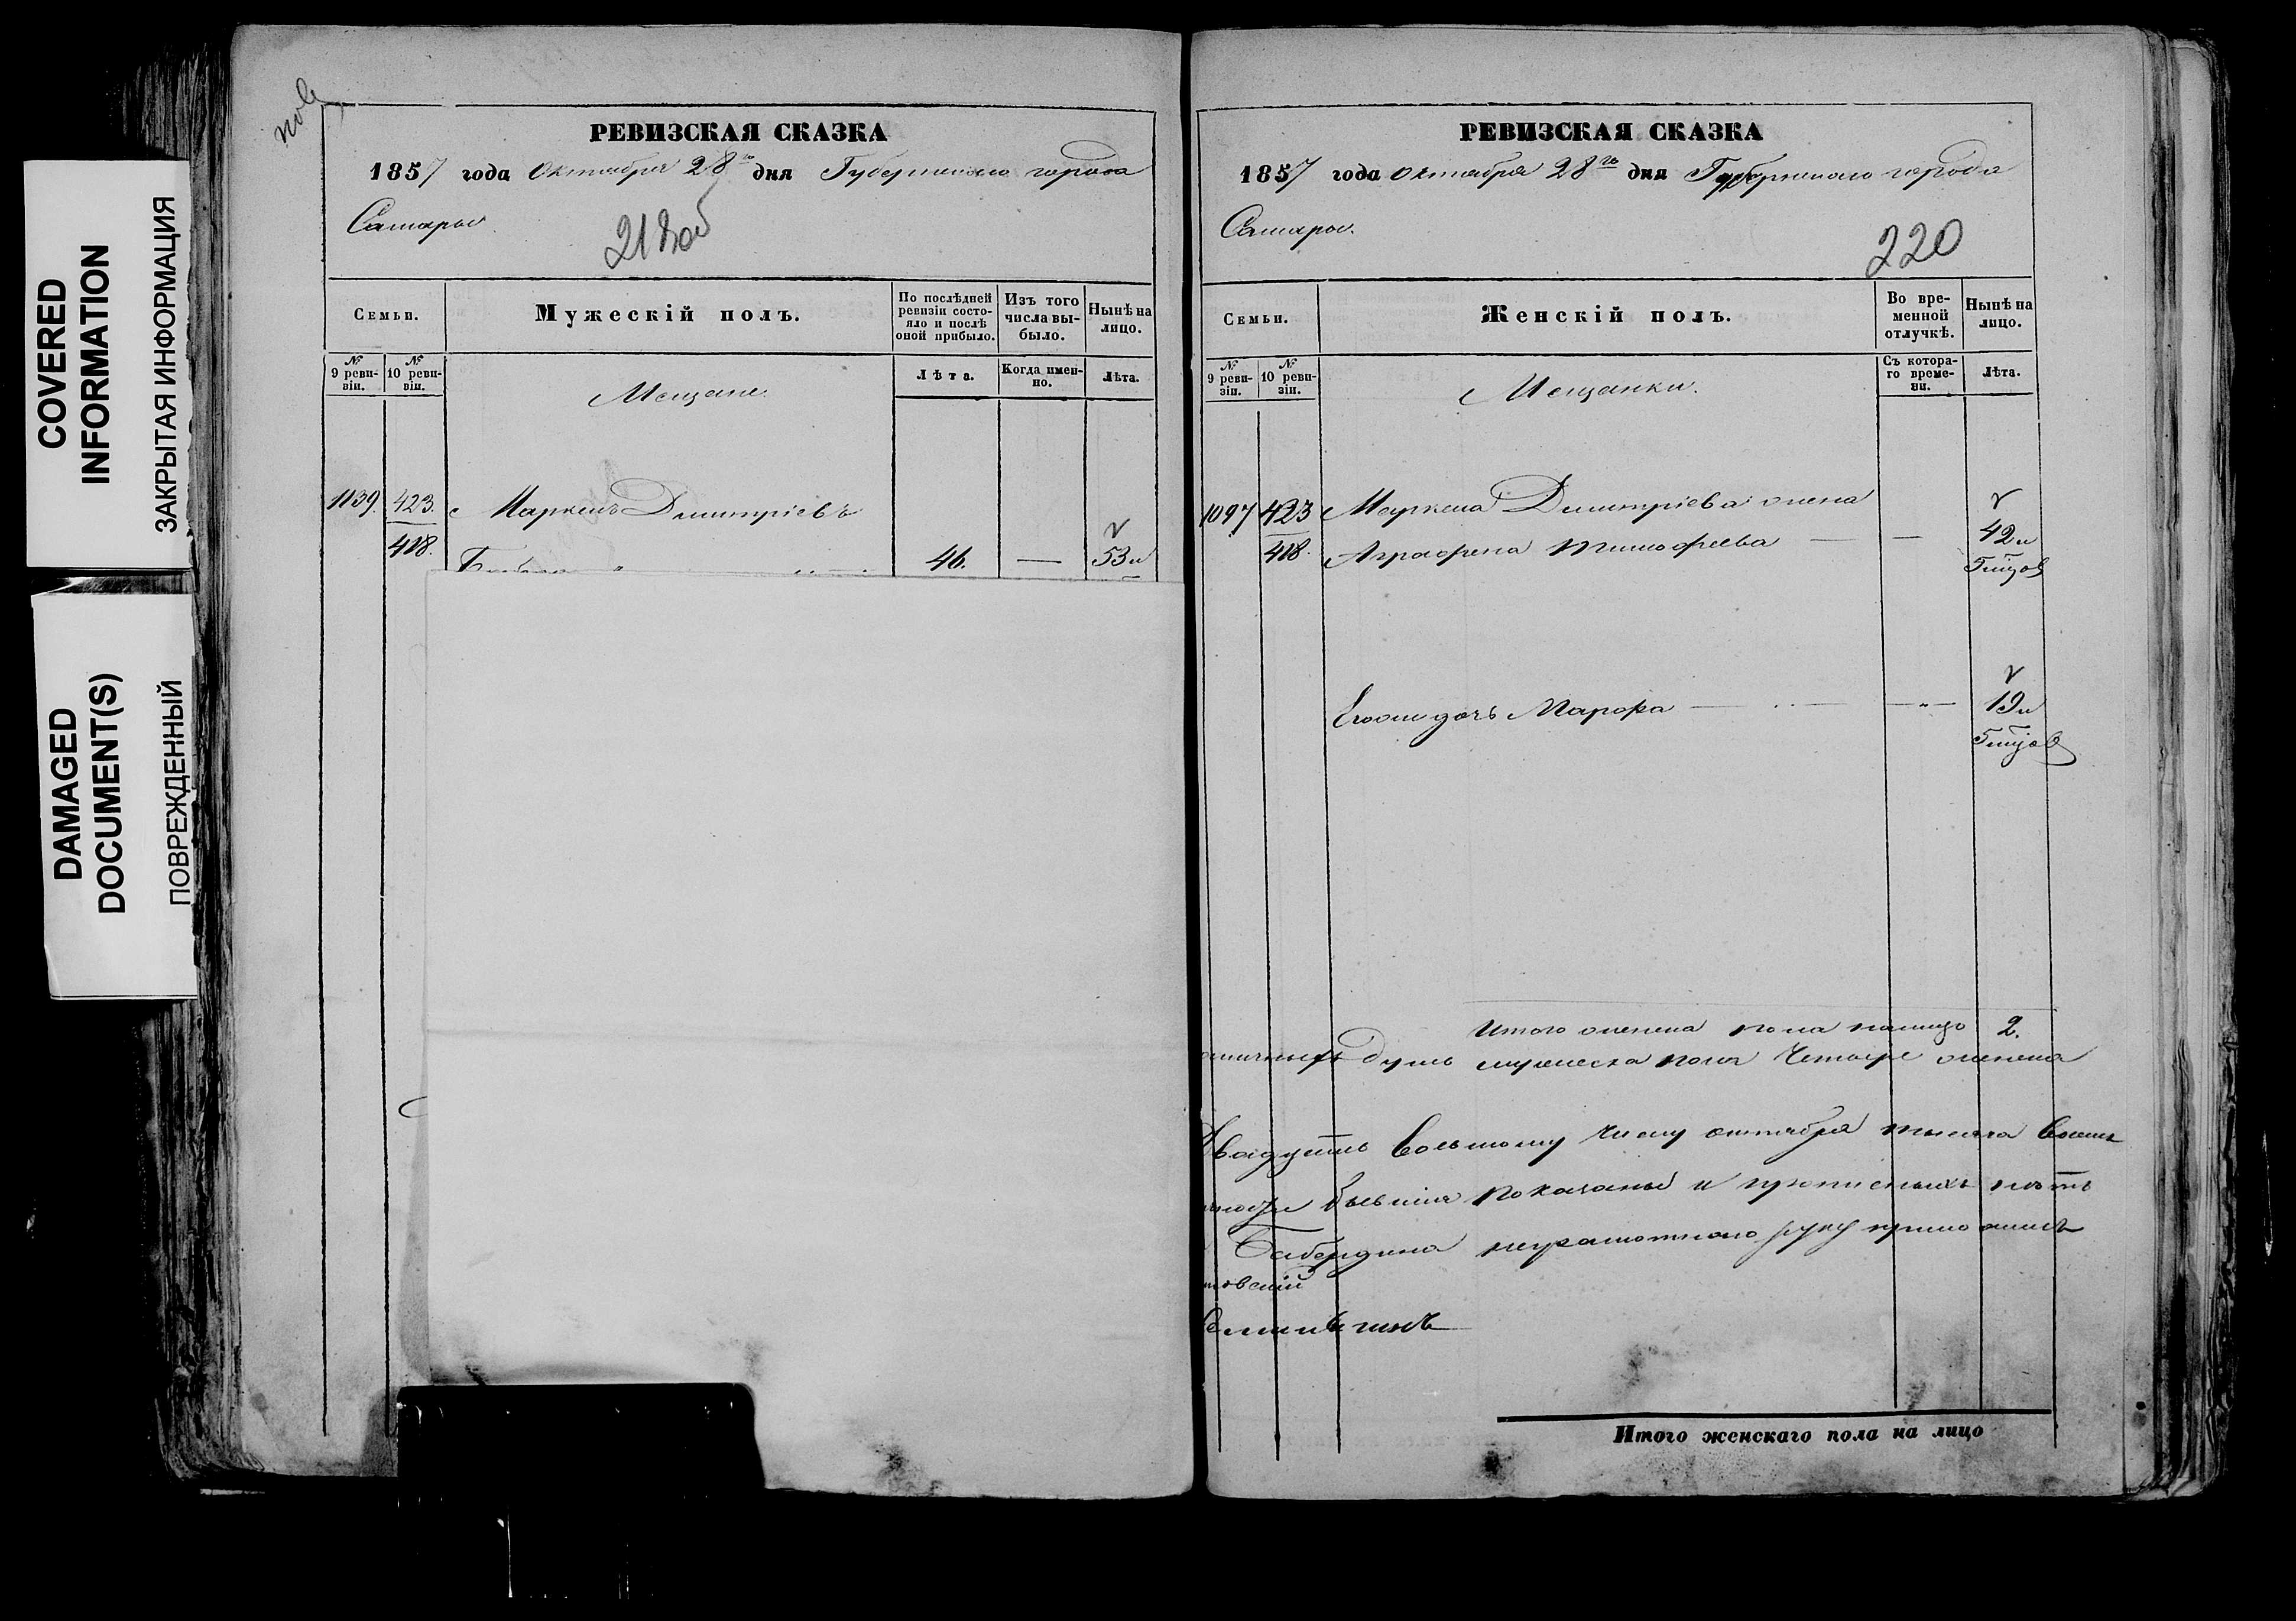 COVERED
INFORMATION
ЗАКРЫТАЯ ИНФОРМАЦИЯ
DAMAGED
DOCUMENT(S)
ПОВРЕЖДЕННЫЙ
РЕВИЗСКАЯ СКАЗКА
1857 года Октября 28го дня Губернскаго города
Самары.
Семьи.
Мужескій полъ.
По послѣдней ревизіи состояло и послѣ оной прибыло.
Изъ того числа выбыло.
Нынѣ на лицо.
№ 9 ревизіи.
№ 10 ревизіи.
Мещане.
Лѣта.
Когда именно.
Лѣта.
1139. 423. Маркелъ Дмитріевъ
418. 46. — 53 и
РЕВИЗСКАЯ СКАЗКА
1857 года Октября 28го дня Губернскаго города
Самары.
220
Семьи.
Женскій полъ.
Во временной отлучкѣ.
Нынѣ на лицо.
№ 9 ревизіи.
№ 10 ревизіи.
Мещанки.
Съ котораго времени.
Лѣта.
1097 423 Маркела Дмитріева жена
418. Аграфена Тимофеева — — 42 и
5 мцов
Егоже дочь Марфа — — 19 и
5 мцов
Итого женска пола налицо 2.
душъ мужеска пола Четыре женска
Двадцать восьмому числу октября тысяча восемь
бывшия показаны и прописныхъ нѣтъ
неграмотнаго руку приложилъ
Итого женскаго пола на лицо